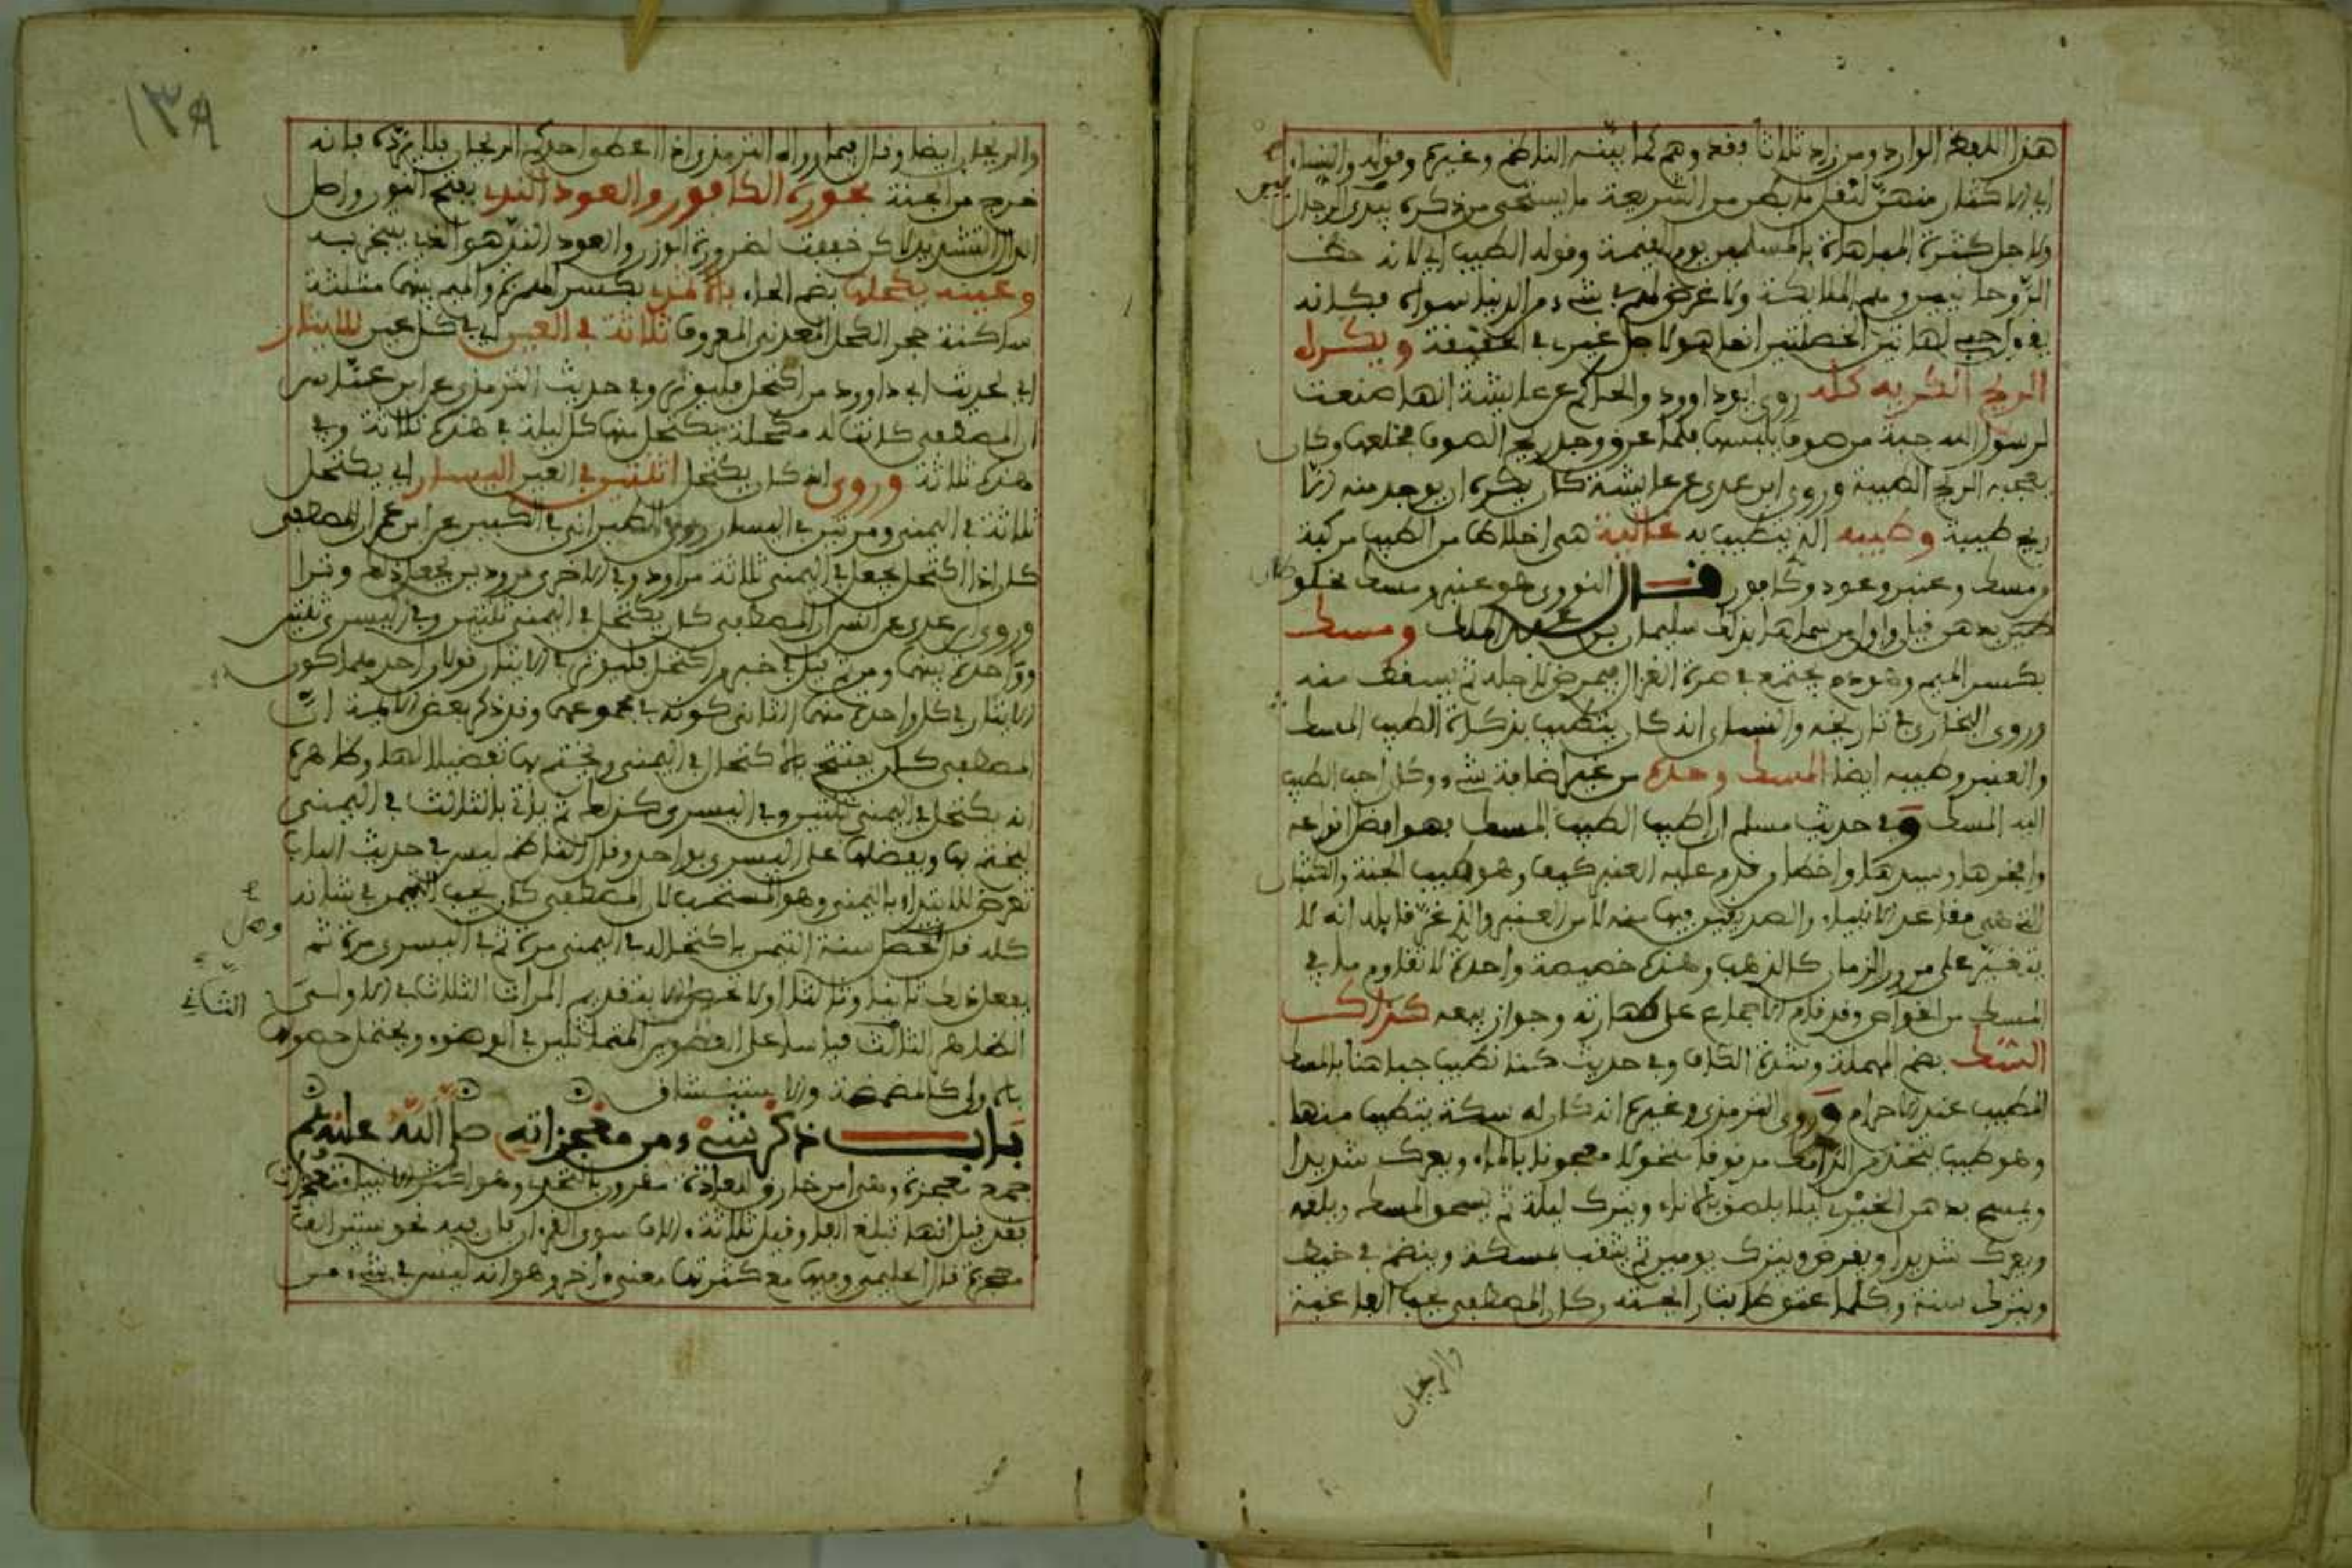 هذا اللفظ الوارد ومن زاد ثلاثا فقد وهم كما بينه الناظم وغيره وقوله والنساء
اي الاكثار منهن لنقل ما بطن من الشريعة ما يستحي من ذكره بين الرجال
ولاجل كثرة المباهاة بالمسلمين يوم القيمة وقوله الطيب اي لانه حظ
الروحانيين وهم الملايكة ولا غرض لهم في شيء من الدنيا سواه فكانه
يقول حبي لهاتين الخصلتين انما هو لاجل غيري في الحقيقة ويكره
الريح الكريه كله روى ابو داوود والحاكم عن عايشة انها صنعت
لرسول الله جبة من صوف فلبسها فلما عرق وجد ريح الصوف فخلعها وكان
يعجبه الريح الطيبة وروى ابن عدي عن عايشة كان يكره ان يوجد منه الا
ريح طيبة وطيبه الذي يتطيب به غالية هي اخلاط من الطيب مركبة
ومسك وعنبر وعود وكافور قال النووي هو عنبر ومسك مخلوطان
بدهن قيل واول من سماها بذلك سليمان بن عبد الملك ومسك
بكسر الميم وهو دم يجتمع في سرة الغزال فيمرض لاجله ثم يسقط منه
وروى البخاري في تاريخه والنساي انه كان يتطيب بذكارة الطيب المسك
والعنبر وطيبه ايضا المسك وحده من غير اضافة شيء وكان احب الطيب
اليه المسك وفي حديث مسلم ان اطيب الطيب المسك فهو افضل انواعه
وافخرها وسيدها واخطا من قدم عليه العنبر كيف وهو طيب الجنة والكثبان
التي هي مقاعد الانبياء والصديقين فيها منه لا من العنبر والذي غر قايله انه لا
يتغير على مرور الزمان كالذهب وهذه خصيصة واحدة لا تقاوم ما في
المسك من الخواص وقد قام الاجماع على طهارته وجواز بيعه كذاك
السك بضم المهملة وشدة الكاف وفي حديث كنا نطيب جباهنا بالسك
المطيب عند الاحرام وروى الترمذي وغيره انه كان له سكة يتطيب منها
وهو طيب يتخذ من الرامك مدقوقا منخولا معجونا بالماء ويعرك شديدا
ويمسح بدهن الخيري ليلا يلصق بالاناء ويترك ليلة ثم يسحق المسك ويلقمه
ويعرك شديدا ويقرص ويترك يومين ثم يثقب بمسلة وينظم في خيط
ويترك سنة وكلما عتق طابت رايحته وكان المصطفى يحب الفاغية
والريحان
١٣٩
والريحان ايضا وقال فيما رواه الترمذي اذا اعطي احدكم الريحان فلا يرده فانه
خرج من الجنة بخوره الكافور والعود الند بفتح النون واصل
الدال التشديد لاكن خففت لضرورة الوزن والعود الند هو الذي يبخر به
وعينه يكحلها بضم الحاء باثمد بكسر الهمزة والميم بينهما مثلثة
ساكنة حجر الكحل المعدني المعروف ثلاثة في العين اي في كل عين للايتار
اي لحديث ابي داوود من اكتحل فليوتر وفي حديث الترمذي عن ابن عباس
ان المصطفى كانت له مكحلة يكتحل منها كل ليلة في هذه ثلاثة وفي
هذه ثلاثة وروي انه كان يكتحل اثنتين في العين اليسار اي يكتحل
ثلاثة في اليمنى ومرتين في اليسار روى الطبراني في الكبير عن ابن عمر ان المصطفى
كان اذا اكتحل يجعل في اليمنى ثلاثة مراود وفي الاخرى مرودين يجعل ذلك وترا
وروى ابن عدي عن انس ان المصطفى كان يكتحل في اليمنى ثنتين وفي اليسرى ثنتين
وواحدة بينهما ومن ثم قيل في خبر من اكتحل فليوتر في الايتار قولان احدهما كون
الايتار في كل واحدة منهما الثاني كونه في مجموعهما وقد ذكر بعض الايمة ان
المصطفى كان يفتتح بالاكتحال في اليمنى ويختم بها تفضيلا لها وظاهره
انه يكتحل في اليمنى ثنتين وفي اليسرى كذلك ثم ياتي بالثالث في اليمنى
ليختم بها ويفضلها على اليسرى بواحد وقال الناظم ليس في حديث الباب
تعرض للابتداء باليمنى وهو المستحب لان المصطفى كان يحب التيمن في شانه
كله وهل تحصل سنة التيمن باكتحاله في اليمنى مرة ثم في اليسرى مرة ثم
يفعل ذلك ثانيا وثالثا او لا تحصل الا بتقديم المرات الثلاث في الاولى
الظاهر الثاني قياسا على العضوين المتماثلين في الوضوء ويحتمل حصولها
بالاول كالمضمضة والاستنشاق
باب ذكر شيء من معجزاته صلى الله عليه وسلم
جمع معجزة وهي امر خارق للعادة مقرون بالتحدي وهو اكثر الانبياء معجزات
فقد قيل انها تبلغ الفا وقيل ثلاثة ءالاف سوى القرءان فان فيه نحو ستين الف
معجزة قال الحليمي وفيها مع كثرتها معنى ءاخر وهو انه ليس في شيء من